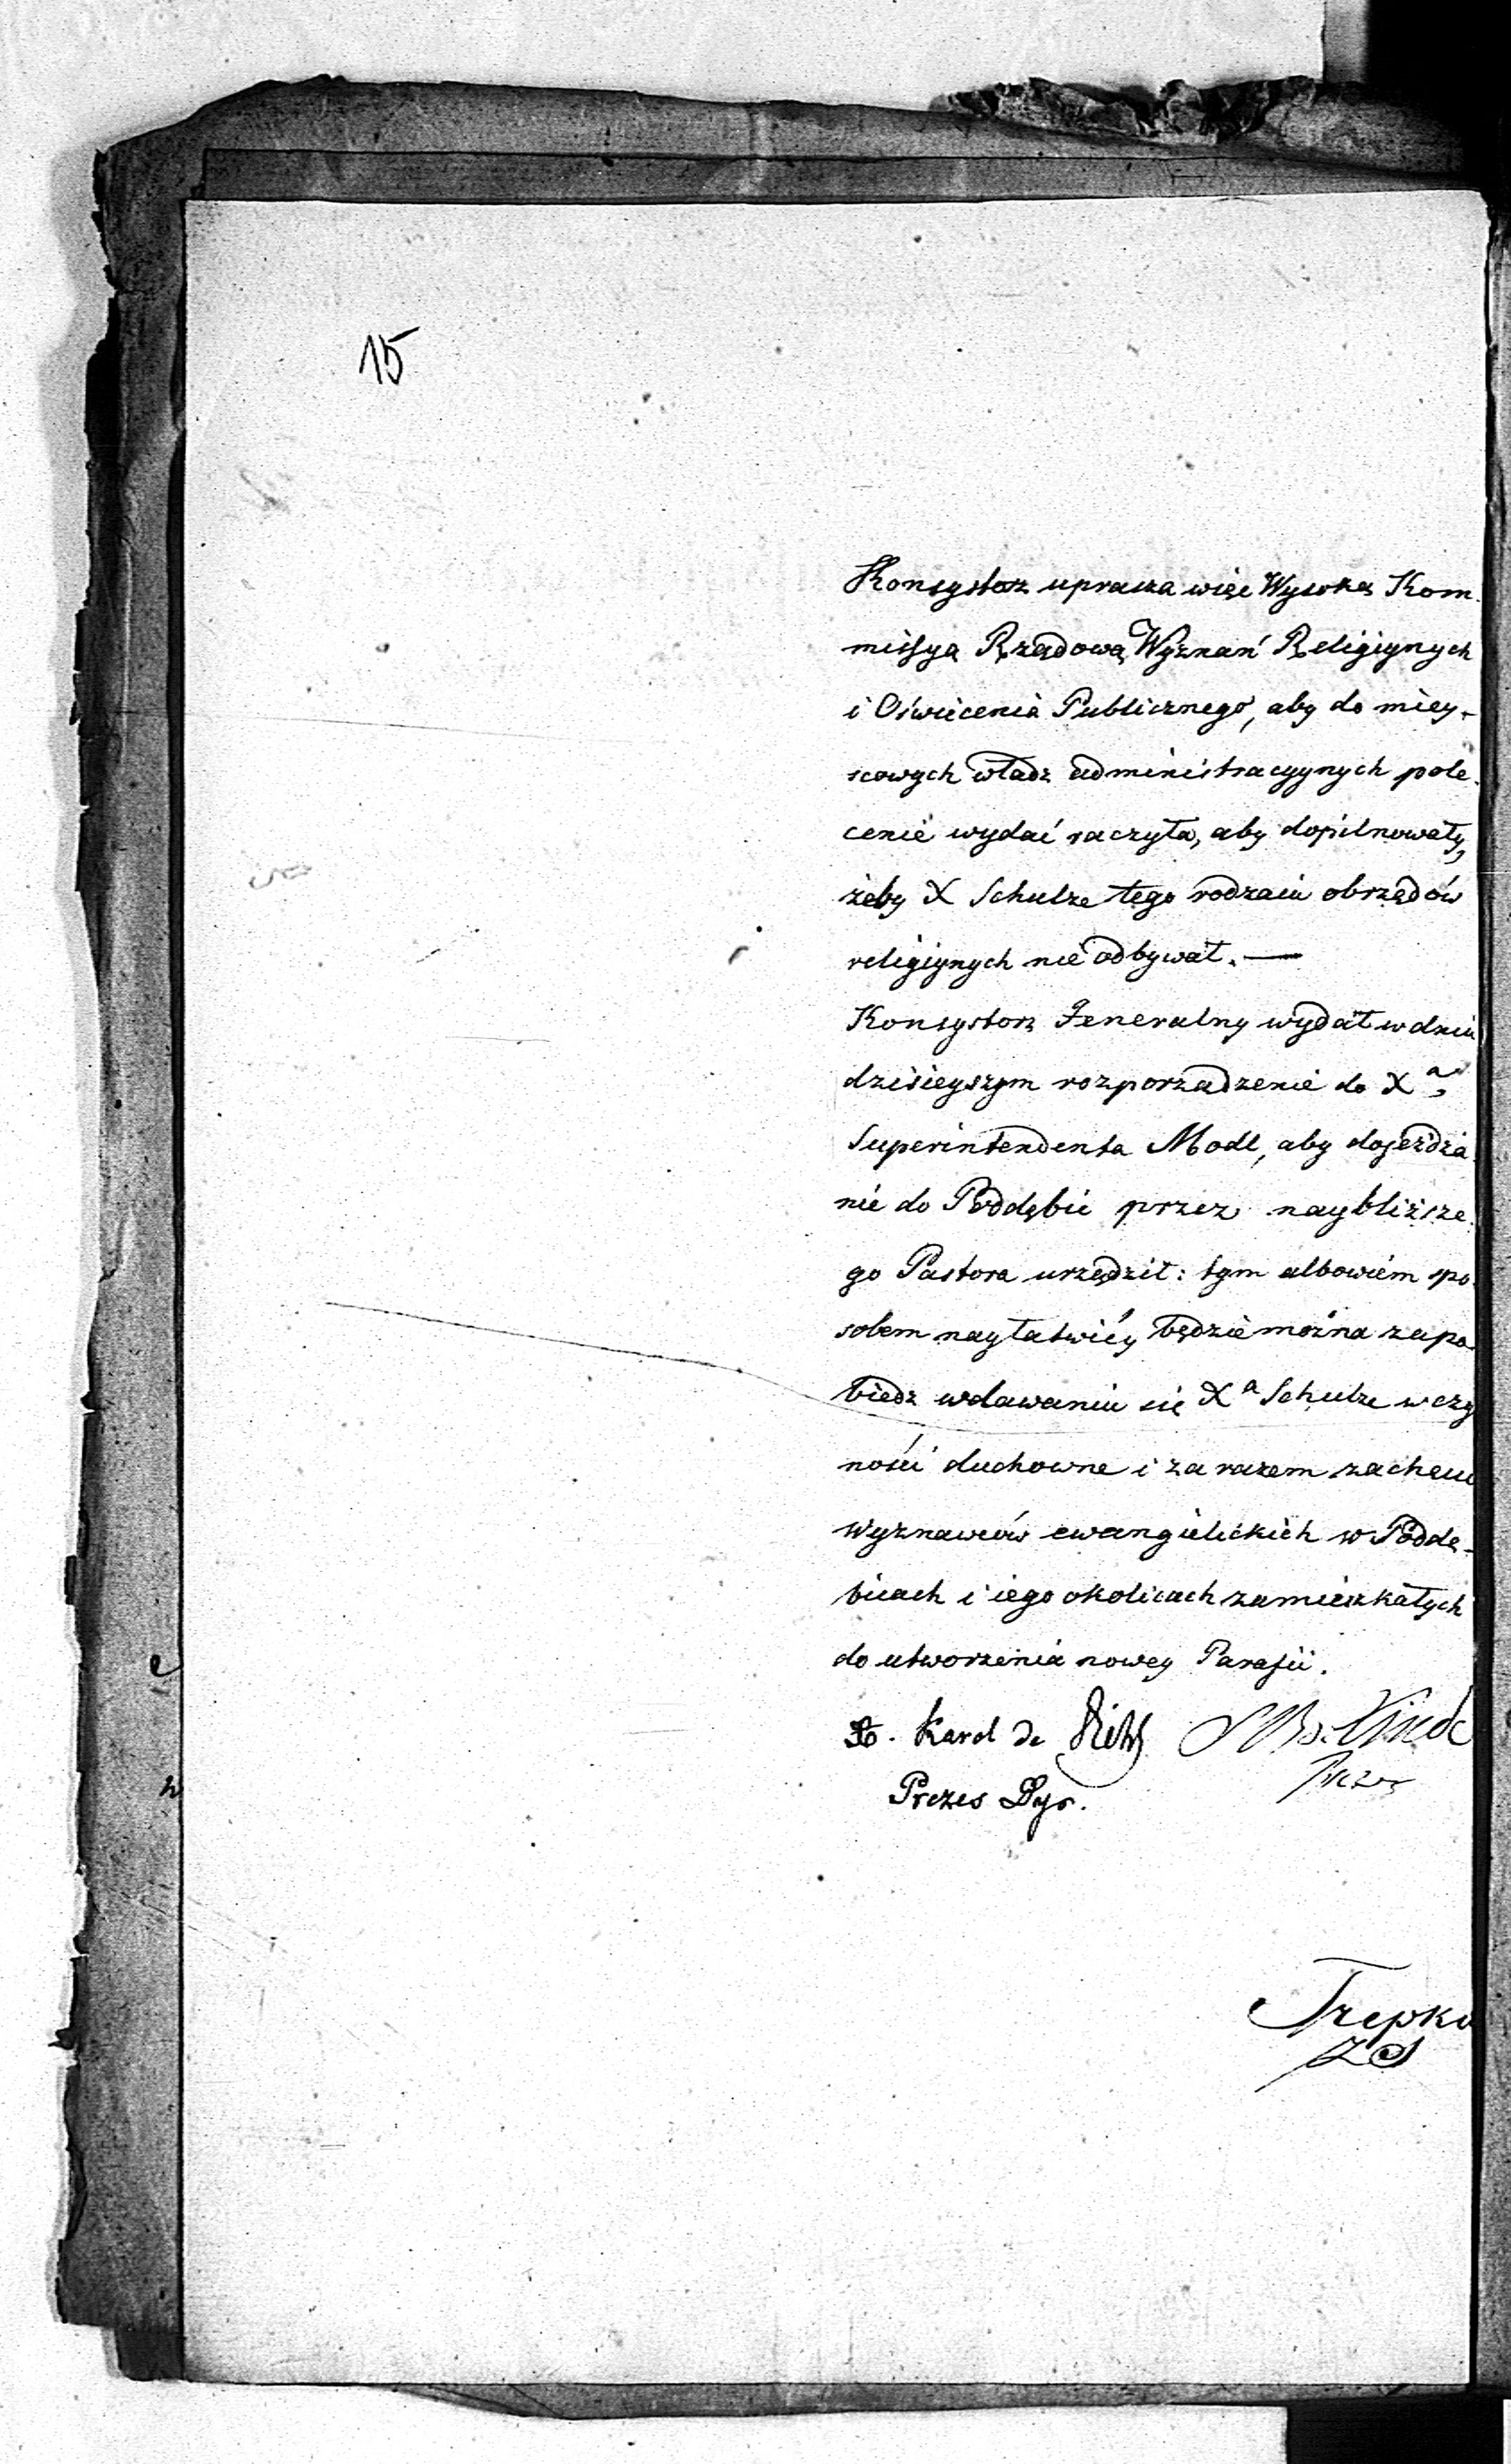 15
Konsystorz uprasza więc Wysoką Kom-
missyą Rządową Wyznań Religiynych
i Oświecenia Publicznego, aby do miey-
scowych władz administracyynych pole-
cenie wydać raczyła, aby dopilnowały,
żeby X Schulze tego rodzaiu obrzędów
religiynych nie odbywał. —
Konsystorz Jeneralny wydał w dniu
dzisieyszym rozporządzenie do Xa
Superintendenta Modl, aby dojeżdża-
nie do Poddębic przez naybliższe-
go Pastora urządził: tym albowiem spo-
sobem nayłatwiéy będzie można zapo-
biedz wdawaniu się Xa Schulze w czy
ności duchowne i za razem zachęcić
wyznawców ewangielickich w Poddę-
bicach i iego okolicach zamieszkałych
do utworzenia nowey Parafii.
X. Karol de
Prezes Dyr.
Linde
Prezes
Trepka
ZS
e
w